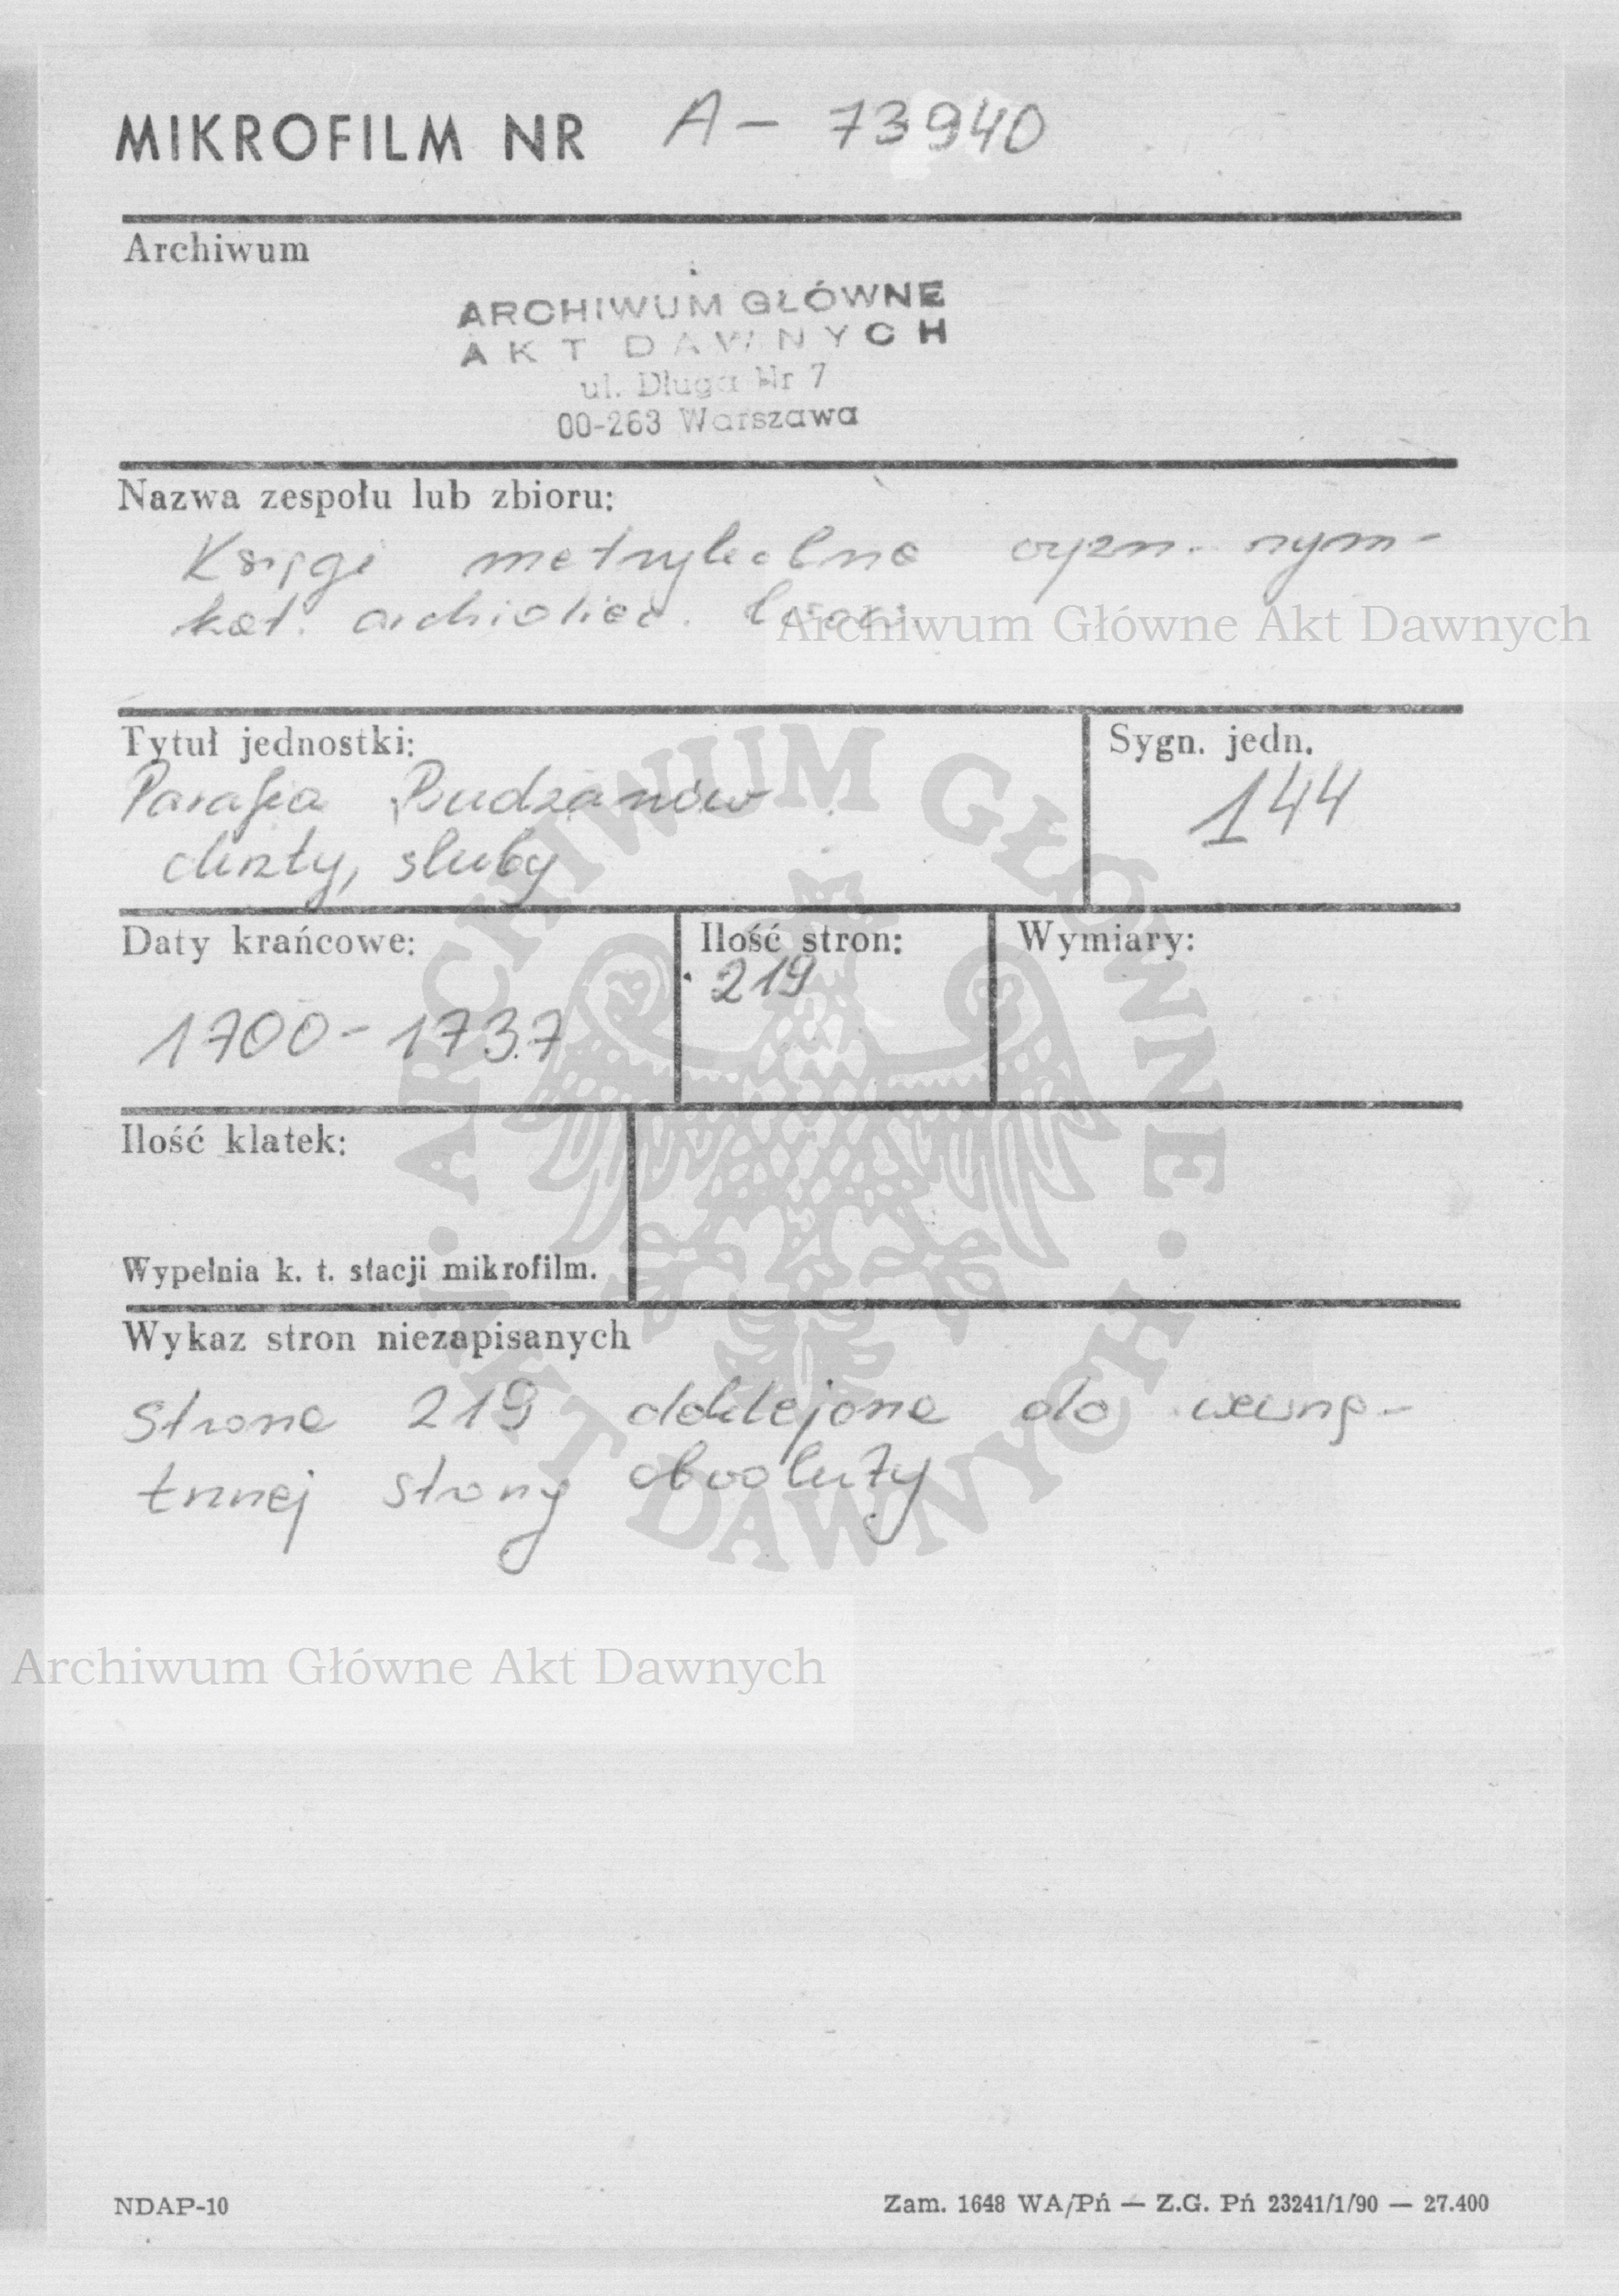 MIKROFILM NR A - 73940
Archiwum
ARCHIWUM GŁÓWNE
AKT DAWNYCH
ul. Długa Nr 7
00-263 Warszawa
Nazwa zespołu lub zbioru:
Księgi metrykalne wyzn. rzym-
kat. archidiec. lwow.
Archiwum Główne Akt Dawnych
Tytuł jednostki:
Parafia Budzanów
chrzty, śluby
Sygn. jedn.
144
Daty krańcowe:
1700-1737
Ilość stron:
219
Wymiary:
Ilość klatek:
Wypełnia k. t. stacji mikrofilm.
Wykaz stron niezapisanych
Strona 219 doklejona do wewnę-
trznej strony obwoluty
ARCHIWUM GŁÓWNE · AKT DAWNYCH ·
Archiwum Główne Akt Dawnych
NDAP-10
Zam. 1648 WA/Pń — Z.G. Pń 23241/1/90 — 27.400